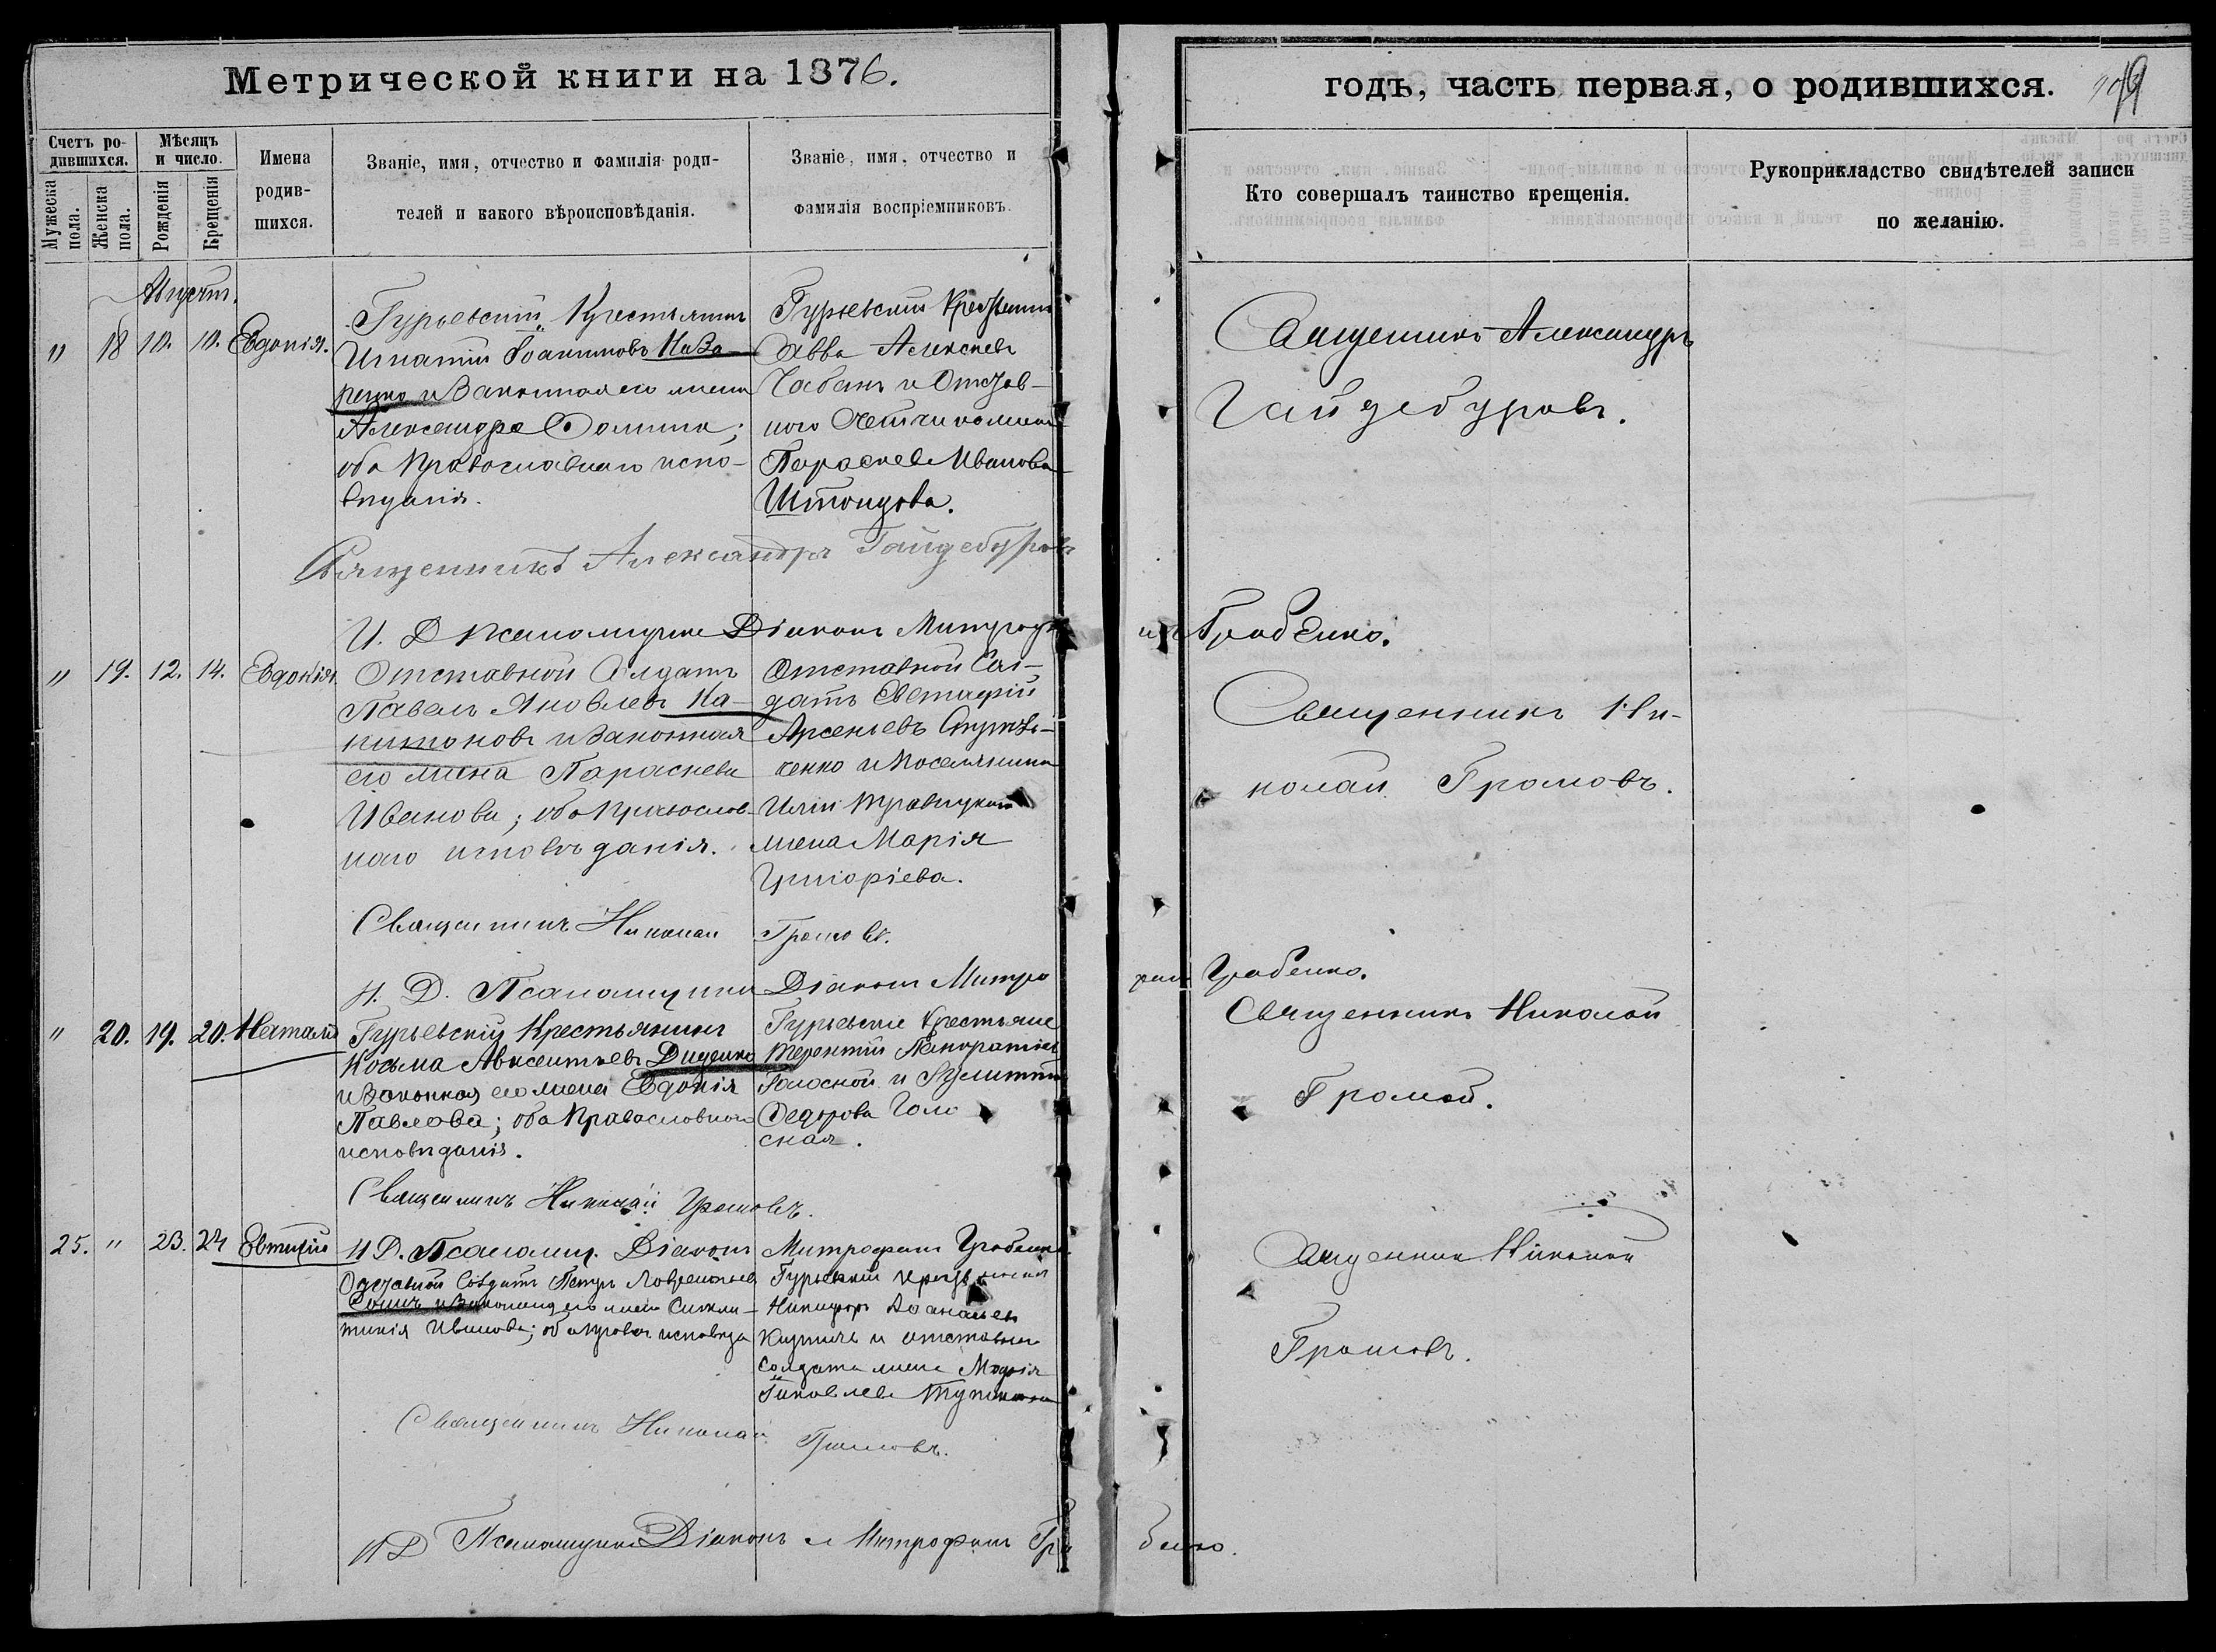 Метрической книги на 1876.
годъ, часть первая, о родившихся.
Счетъ ро-
дившихся.
Мѣсяцъ
и число.
Имена
родив-
шихся.
Званіе, имя, отчество и фамилія роди-
телей и какого вѣроисповѣданія.
Званіе, имя, отчество и
фамилія воспріемниковъ.
Мужеска
пола.
Женска
пола.
Рожденія
Крещенія
Кто совершалъ таинство крещенія.
Рукоприкладство свидѣтелей записи
по желанію.
Августъ.
" 18 10. 10. Евдокія.
Гурьевскій Крестьянинъ
Игнатій Іоакимовъ Наза-
ренко и Законная его жена
Александра Фомина;
оба Православнаго испо-
вѣданія.
Гурьевскій Крестьянинъ
Савва Алексѣевъ
Чабанъ и Отстав-
ного жена
Параскева Иванова
Священникъ Александръ
Гайдебуровъ.
Священникъ Александръ Гайдебуровъ
И. Д Псаломщика Діаконъ Митрофанъ Грабенко.
" 19. 12. 14. Евдокія
Отставной Солдатъ
Павелъ Яковлевъ Ка-
питоновъ и Законная
его жена Параскева
Иванова; оба Православ-
наго исповѣданія.
Отставной Сол-
датъ Евстафій
Арсеньевъ
и Поселянина
Иліи жена Марія
Григоріева.
Священникъ Ни-
колай Громовъ.
Священникъ Николай Громовъ.
И. Д. Псаломщика Діаконъ Митрофанъ Грабенко.
" 20. 19. 20. Наталія
Гурьевскій Крестьянинъ
Козьма Авксентьевъ Диденко
и Законная его жена Евдокія
Павлова; оба Православнаго
исповѣданія.
Гурьевскіе Крестьяне
Терентій Панкратіевъ
Голосной и
Федорова Голо
сная.
Священникъ Николай
Громовъ.
Священникъ Николай Громовъ.
И Д. Псаломщ. Діаконъ Митрофанъ Грабенко
25. " 23. 24 Евтихій
Отставной Солдатъ Петръ
Сомикъ и Законная его жена Синкли-
тикія Иванова; оба правос. исповѣда
Гурьевскій крестьянинъ
Никифоръ
и отставнаго
Солдата жена Марія
Яковлева
Священникъ Николай
Громовъ.
Священникъ Николай Громовъ.
И Д Псаломщика Діаконъ Митрофанъ Грабенко.